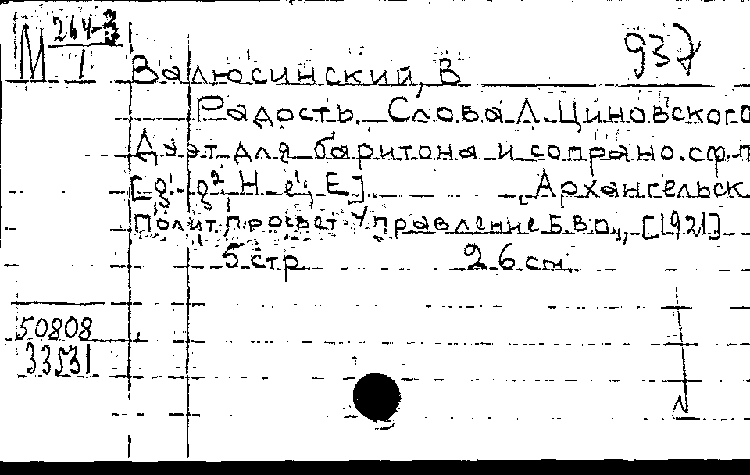 М 264-
1
937
Валюсинский, В
Радость. Слова Л. Циновского
Дуэт для баритона и сопрано. с ф.п
[g¹-g² H-e¹, E] , Архангельск
Полит. Просвет. Управление Б.В.О., [1921]
5 стр 26 см.
50808
33531